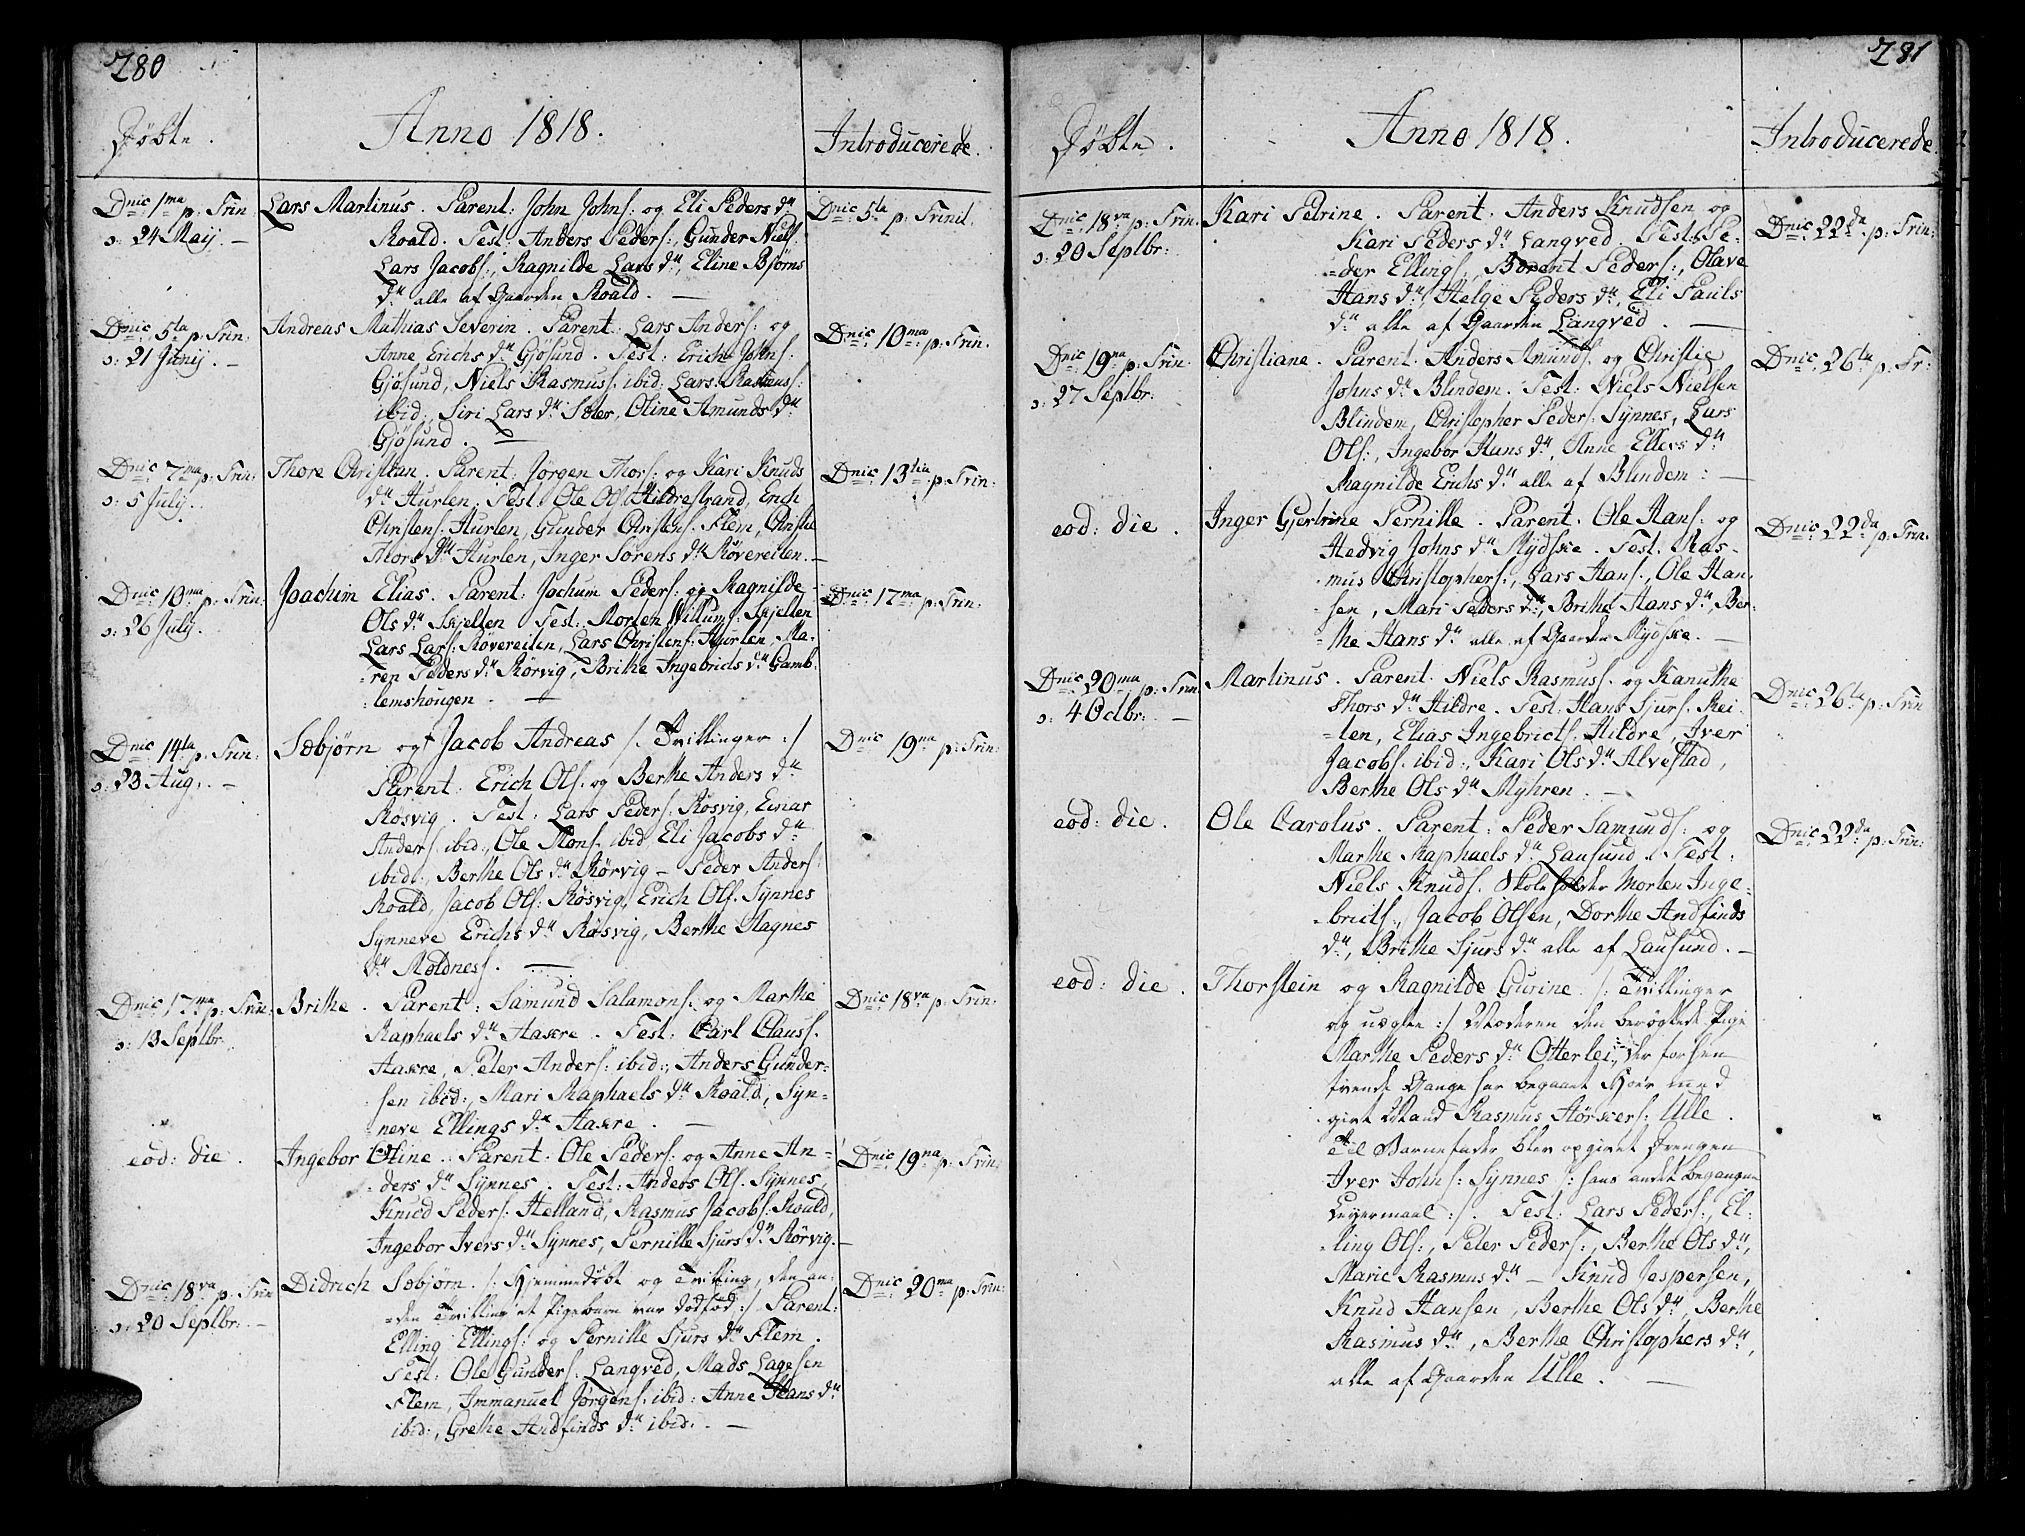 280
Døbte.
Anno 1818.
Introducerede.
Dnic 1ma p: Trin
ɔ: 24 Maij. —
Lars Martinus. Parent: John Johns: og Eli Peders dr
Roald. Test: Anders Peders:, Gunder Niels:
Lars Jacobs:, Ragnilde Lars dr, Eline Bjørns
dr alle af Gaarden Roald. —
Dnic 5ta p: Trinit.
Dnic 5ta p: Trin:
ɔ: 21 Junij. —
Andreas Mathias Severin. Parent: Lars Anders: og
Anne Erichs dr Gjøsund. Test: Erich Johns:
Gjøsund, Niels Rasmus: ibid: Lars Rasmus:
ibid:, Siri Lars dr Sæter, Oline Amunds dr
Gjøsund. —
Dnic 10ma p: Trin.
Dnic 7ma p: Trin:
ɔ: 5 July.
Thore Christian. Parent: Jørgen Thors: og Kari Knuds
dr Hurlen. Test: Ole Ols: Hildrestrand, Erich
Christens: Hurlen, Gunder Christens: Flem, Christie
Thors dr Hurlen, Inger Sørens dr Røvereiten. —
Dnic 13tia p: Trin:
Dnic 10ma p: Trin:
ɔ: 26 July.
Joachim Elias. Parent: Jochum Peders: og Ragnilde
Ols dr Skjelten. Test: Morten Willums: Skjelten
Lars Lars: Røvereiten, Lars Christens: Hurlen, Ma-
-ren Peders dr Rørvig, Brithe Ingebricts dr Gamb-
-lemshougen. —
Dnic 17ma p: Trin:
Dnic 14ta p: Trin:
ɔ: 23 Aug: —
Sæbjørn og Jacob Andreas /: Tvillinger :/
Parent: Erich Ols: og Berthe Anders dr
Røsvig. Test: Lars Peders: Røsvig, Einar
Anders: ibid:, Ole Mons: ibid, Eli Jacobs dr
ibid:, Berthe Ols dr Rørvig — Peder Anders:
Roald, Jacob Ols: Røsvig, Erich Ols: Synnes
Synneve Erichs dr Røsvig, Berthe Hagnes
dr Moldnes. —
Dnic 19na p: Trin:
Dnic 17ma p: Trin:
ɔ: 13 Septbr:
Brithe. Parent: Samund Salamons: og Marthe
Raphaels dr Haxre. Test: Carl Claus:
Haxre, Peter Anders: ibid:, Anders Gunder-
-sen ibid:, Mari Raphaels dr Roald, Syn-
-neve Ellings dr Haxre. —
Dnic 18va p: Trin:
eod: die.
Ingebor Oline. Parent: Ole Peders: og Anne An-
-ders dr Synnes. Test: Anders Ols: Synnes,
Knud Peders: Helland, Rasmus Jacobs: Roald,
Ingebor Ivers dr Synnes, Pernille Sjurs dr Rørvig. —
Dnic 19na p: Trin:
Dnic 18va p: Trin
ɔ: 20 Septbr: —
Didrich Sæbjørn. /: Hjemmedøbt og Tvilling, den an-
-den Tvilling et Pigebarn var dødfød :/ Parent:
Elling Ellings: og Pernille Sjurs dr Flem.
Test: Ole Gunders: Langved, Mads Lagesen
Flem, Immanuel Jørgens: ibid: Anne Hans dr
ibid:, Grethe Andfinds dr ibid: —
Dnic 20ma p: Trin:
281
Døbte.
Anno 1818.
Introducerede
Dnic 18va p: Trin:
ɔ: 20 Septbr:
Kari Petrine. Parent: Anders Knudsen og
Kari Peders dr Langved. Test: Pe-
-der Ellings:, Berent Peders:, Olave
Hans dr, Helge Peders dr, Eli Pauls
dr alle af Gaarden Langved. —
Dnic 22da p: Trin:
Dnic 19na p: Trin:
ɔ: 27 Septbr:
Christiane. Parent: Anders Amunds: og Christie
Johns dr Blindem. Test: Niels Nielsen
Blindem, Christopher Peders: Synnes, Lars
Ols:, Ingebor Hans dr, Anne Ellevs dr
Magnilde Erichs dr alle af Blindem: —
Dnic 26ta p: Tr:
eod: die.
Inger Gjertrine Pernille. Parent: Ole Hans: og
Hedvig Johns dr Mydske. Test: Ras-
-mus Christophers:, Lars Hans:, Ole Han-
-sen, Mari Peders dr, Brithe Hans dr Ber-
-the Hans dr alle af Gaarden Mydske. —
Dnic 22da p: Trin:
Dnic 20ma p: Trin
ɔ: 4 Octbr: —
Martinus. Parent: Niels Rasmus: og Kanuthe
Thors dr Hildre. Test: Hans Sjurs: Rei-
-ten, Elias Ingebricts: Hildre, Iver
Jacobs: ibid:, Kari Ols dr Alvestad,
Berthe Ols dr Myhren. —
Dnic 26ta p: Trin
eod: die.
Ole Carolus. Parent: Peder Samunds: og
Marthe Raphaels dr Lausund. Test:
Niels Knuds: Skoleholder Morten Inge-
-bricts:, Jacob Olsen, Dorthe Andfinds
dr, Brithe Sjurs dr alle af Lausund. —
Dnic 22da p: Trin:
eod: die.
Thorstein og Ragnilde Gurine. /: Tvillinger
og uægte :/ Moderen den berøgtede Pige
Marthe Peders dr Otterlei, der forhen
tvende Gange har begaaet Hoer med
givt Mand Rasmus Størkers: Ulle.
Til Barnefader blev opgivet Drengen
Iver Johns: Synnes /: hans andet begangne
Leiermaal :/. Test: Lars Peders:, El-
-ling Ols:, Peter Peders:, Berthe Ols dr,
Marie Rasmus dr — Knud Jespersen,
Knud Hansen, Berthe Ols dr, Berthe
Rasmus dr, Berthe Christophers dr,
alle af Gaarden Ulle. —